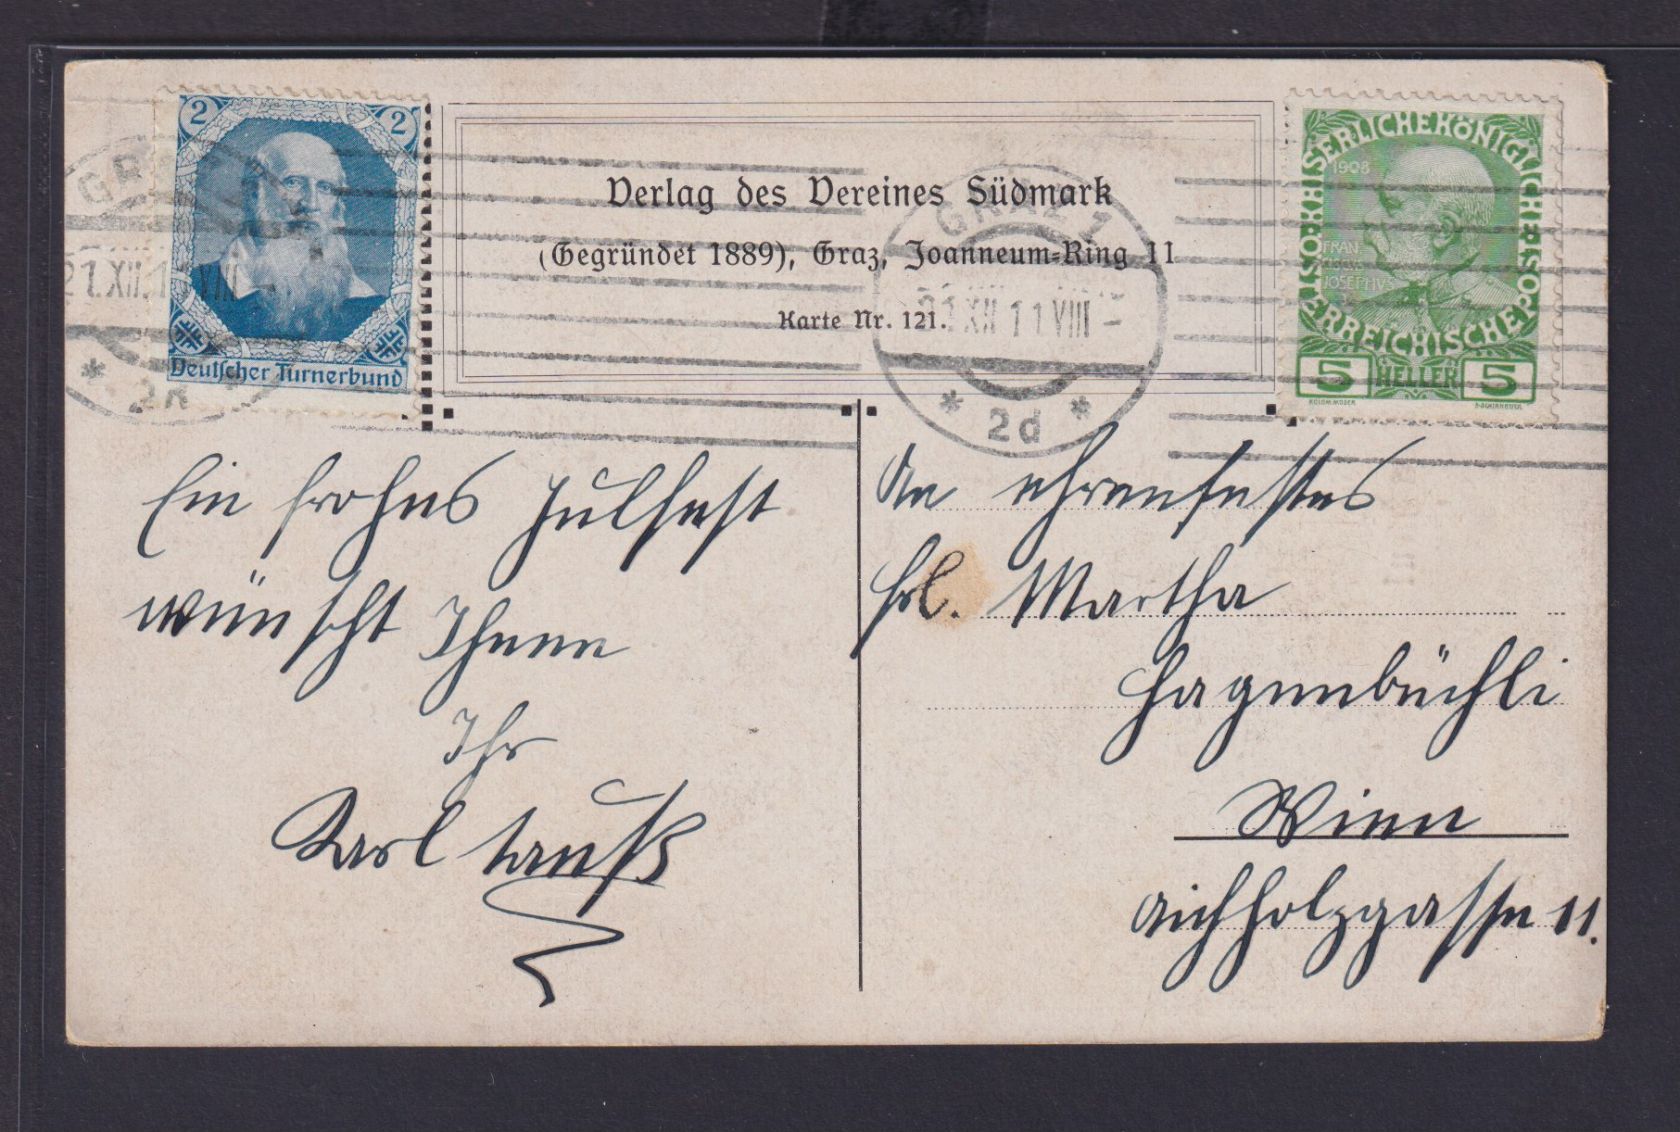 2 2
Deutscher Turnerbund
Verlag des Vereines Südmark
(Gegründet 1889), Graz, Joanneum-Ring 11
Karte Nr. 121.
GRAZ 1
21.XII.11 VIII
* 2d *
KAISERLICHE KÖNIGLICHE ÖSTERREICHISCHE POST
1908
FRAN
JOSEPHVS
5 HELLER 5
Ein frohes Julfest
wünscht Ihnen
Ihr
Karl Tauß
An ehrenfestes
Frl. Martha
Hagenbüchli
Wien
Aichholzgasse 11.